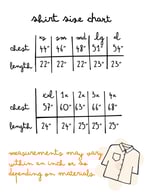 shirt size chart
xs sm md lg xl
chest 44" 46" 48" 51" 54"
length 22" 22" 23" 23" 23"
2x 3x 4x
chest 57" 60" 63" 66" 68"
length 24" 24" 25" 25" 25"
measurements may vary
within an inch or so
depending on materials.